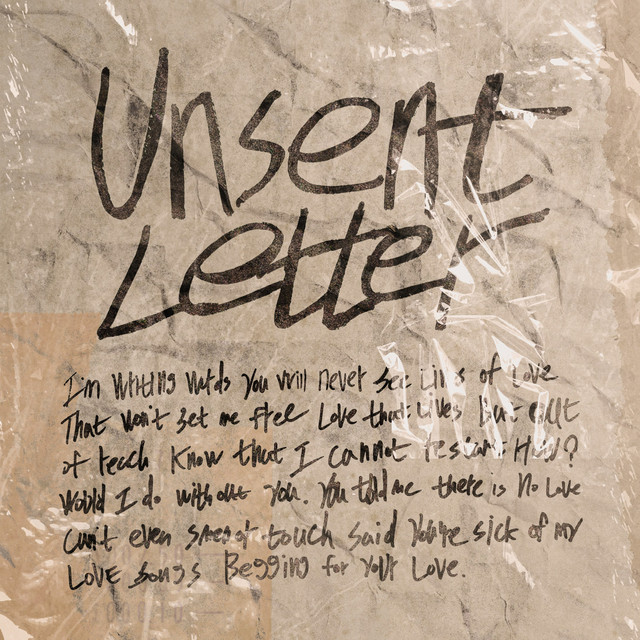 Unsent
Letter
I'm writing words you will never see Lines of Love
That won't set me free Love that lives but out
of reach Know that I cannot restart How?
Would I do without you. You told me there is No Love
can't even touch said you're sick of my
LOVE songs Begging for your Love.